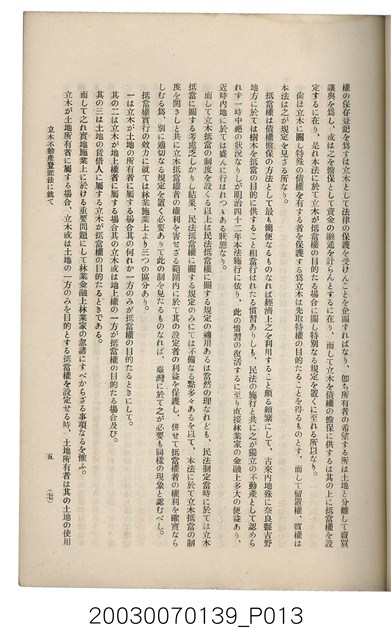 權の保存登記を爲すは立木として法律の保護を受けんことを企圖すればなり、卽ち所有者の希望する所は土地と分離して賣買
讓與を爲し、或は之を擔保として資金の融通を計らんとするに在り、而して立木を債權の擔保に供するは其の上に抵當權を設
定するに在り、是れ本法に於て立木が抵當權の目的たる場合に關し特別なる規定を置くに至れる所以なり。
尙ほ立木に關し特殊の債權を有する者を保護する爲立木は先取特權の目的たることを得るものとす、而して留置權、質權は
本法は之が規定を見さるなり。
抵當權は債權擔保の方法として最も簡便なるものなれば經濟上之を利用すること頗る頻繁にして、古來內地殊に奈良縣吉野
地方に於ては樹木を抵當の目的に供すること相當行はれたる慣習ありしも、民法の施行と共に之が獨立の不動產として認めら
れす一時中絕の狀況なりしが明治四十二年本法施行に依り、此の慣習の復活するに至り直接林業家の金融上多大の便益あり、
近時內地に於ては盛んに行はれつゝある狀態なり。
而して立木抵當の制度を設くる以上は民法抵當權に關する規定の適用あるは當然の理なれども、民法制定當時に於ては立木
抵當に關する考慮乏しかりし結果、民法抵當權に關する規定のみにては不備なる點多々あるを以て、本法に於て立木抵當の制
度を開きしと共に立木抵當權者の權利を害せざる範圍內に於て其の設定者の利益を保護し、併せて抵當權者の權利を確實なら
しむる爲、別に適切なる規定を置く必要ありて此の節を見たるものなれば、臺灣に於て之が必要も同樣の現象と認むべし。
抵當權實行の效力に就ては林業施業上より三つの區分あり。
一は立木が土地の所有者に屬する場合其の何れか一方のみが抵當權の目的たるときにして、
其の二は立木が地上權者に屬する場合其の立木或は地上權の一方が抵當權の目的たる場合及び、
其の三は土地の賃借人に屬する立木が抵當權の目的たるときである。
而して之れ實地施業上に於ける重要問題にして林業金融上林業家の忽諸にすべからざる事項なるを惟ふ。
立木が土地所有者に屬する場合、立木或は土地の一方のみを目的とする抵當權を設定せる時、土地所有者は其の土地の使用
立木不動產登記法に就て
五
(七)
20030070139_P013